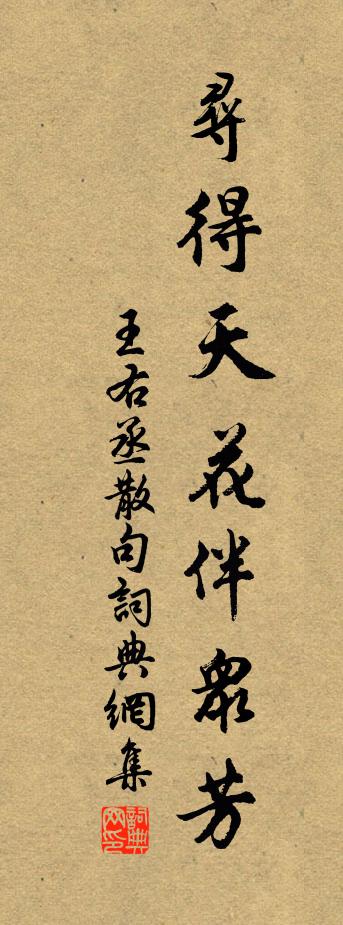 尋得天花伴衆芳
王右丞散句詞典網集
詞典网印